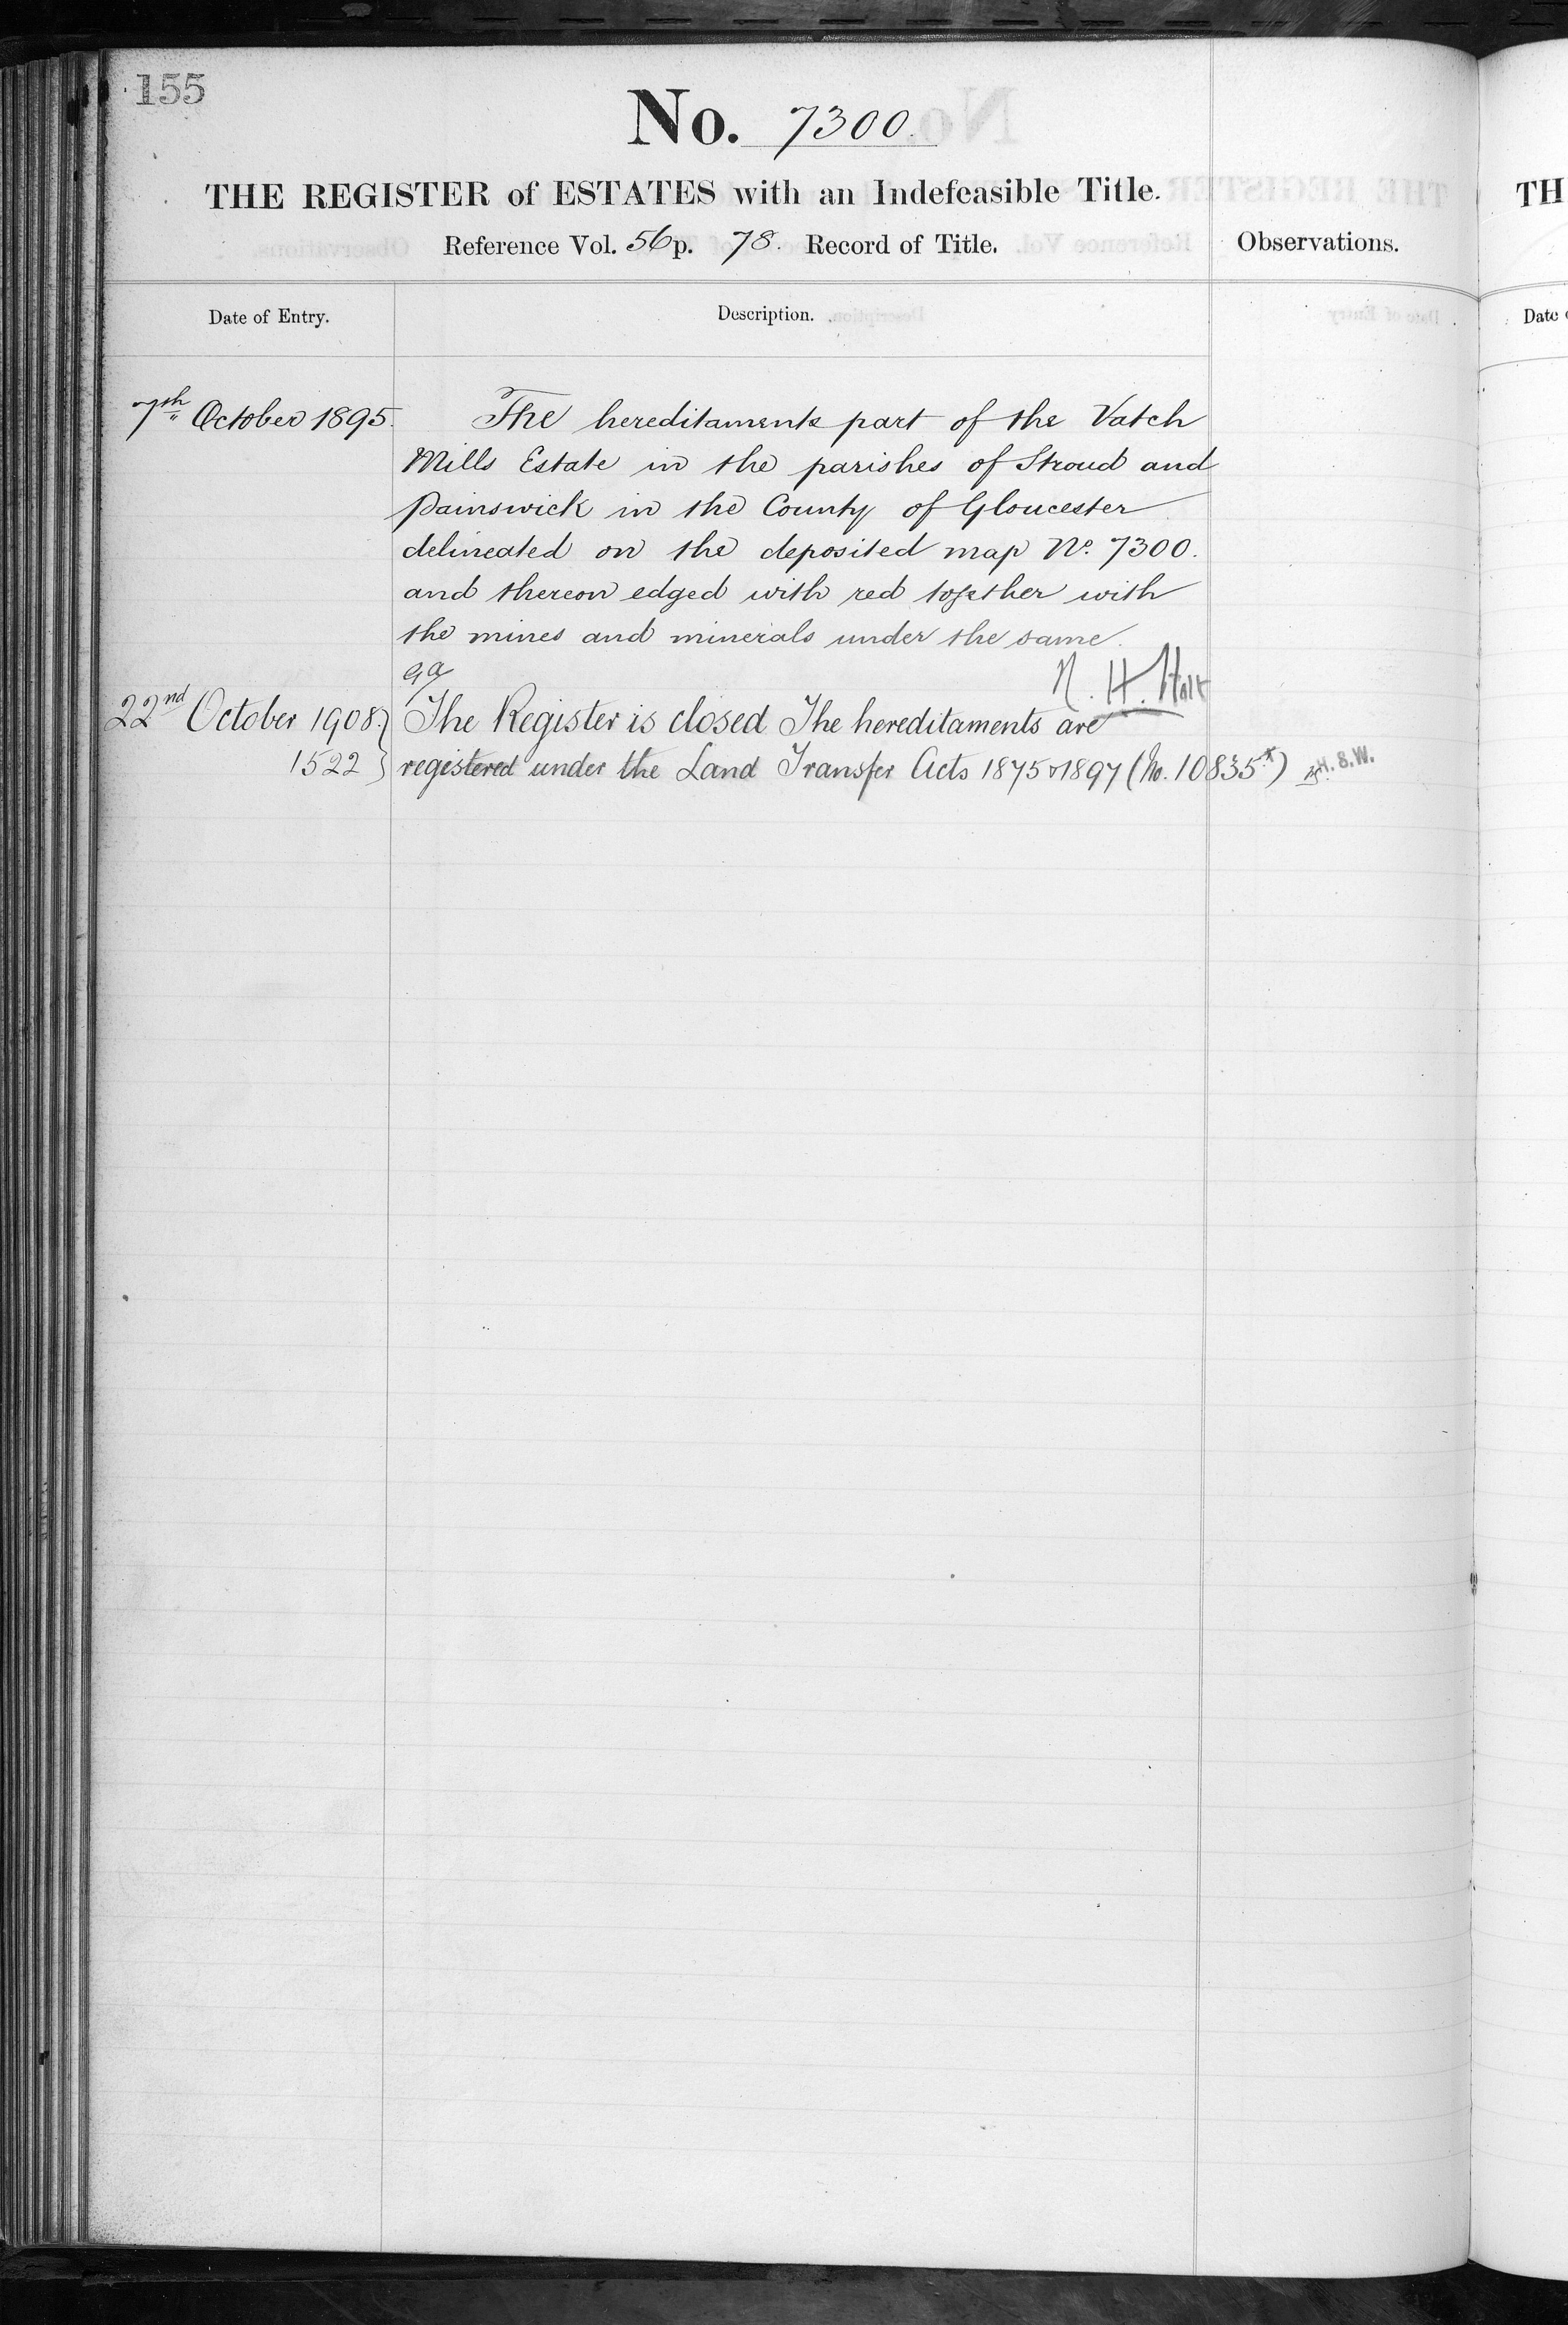 155
No. 7300.
THE REGISTER of ESTATES with an Indefeasible Title.
Reference Vol. 56 p. 78. Record of Title. Observations.
Date of Entry. Description.
7th October 1895. The hereditaments part of the Vatch
Mills Estate in the parishes of Stroud and
Painswick in the County of Gloucester
delineated on the deposited map No. 7300.
and thereon edged with red together with
the mines and minerals under the same.
N. H. Holt
22nd October 1908 } The Register is closed The hereditaments are
1522 } registered under the Land Transfer Acts 1875 & 1897 (No. 10835x) H.S.W.
TH
Date